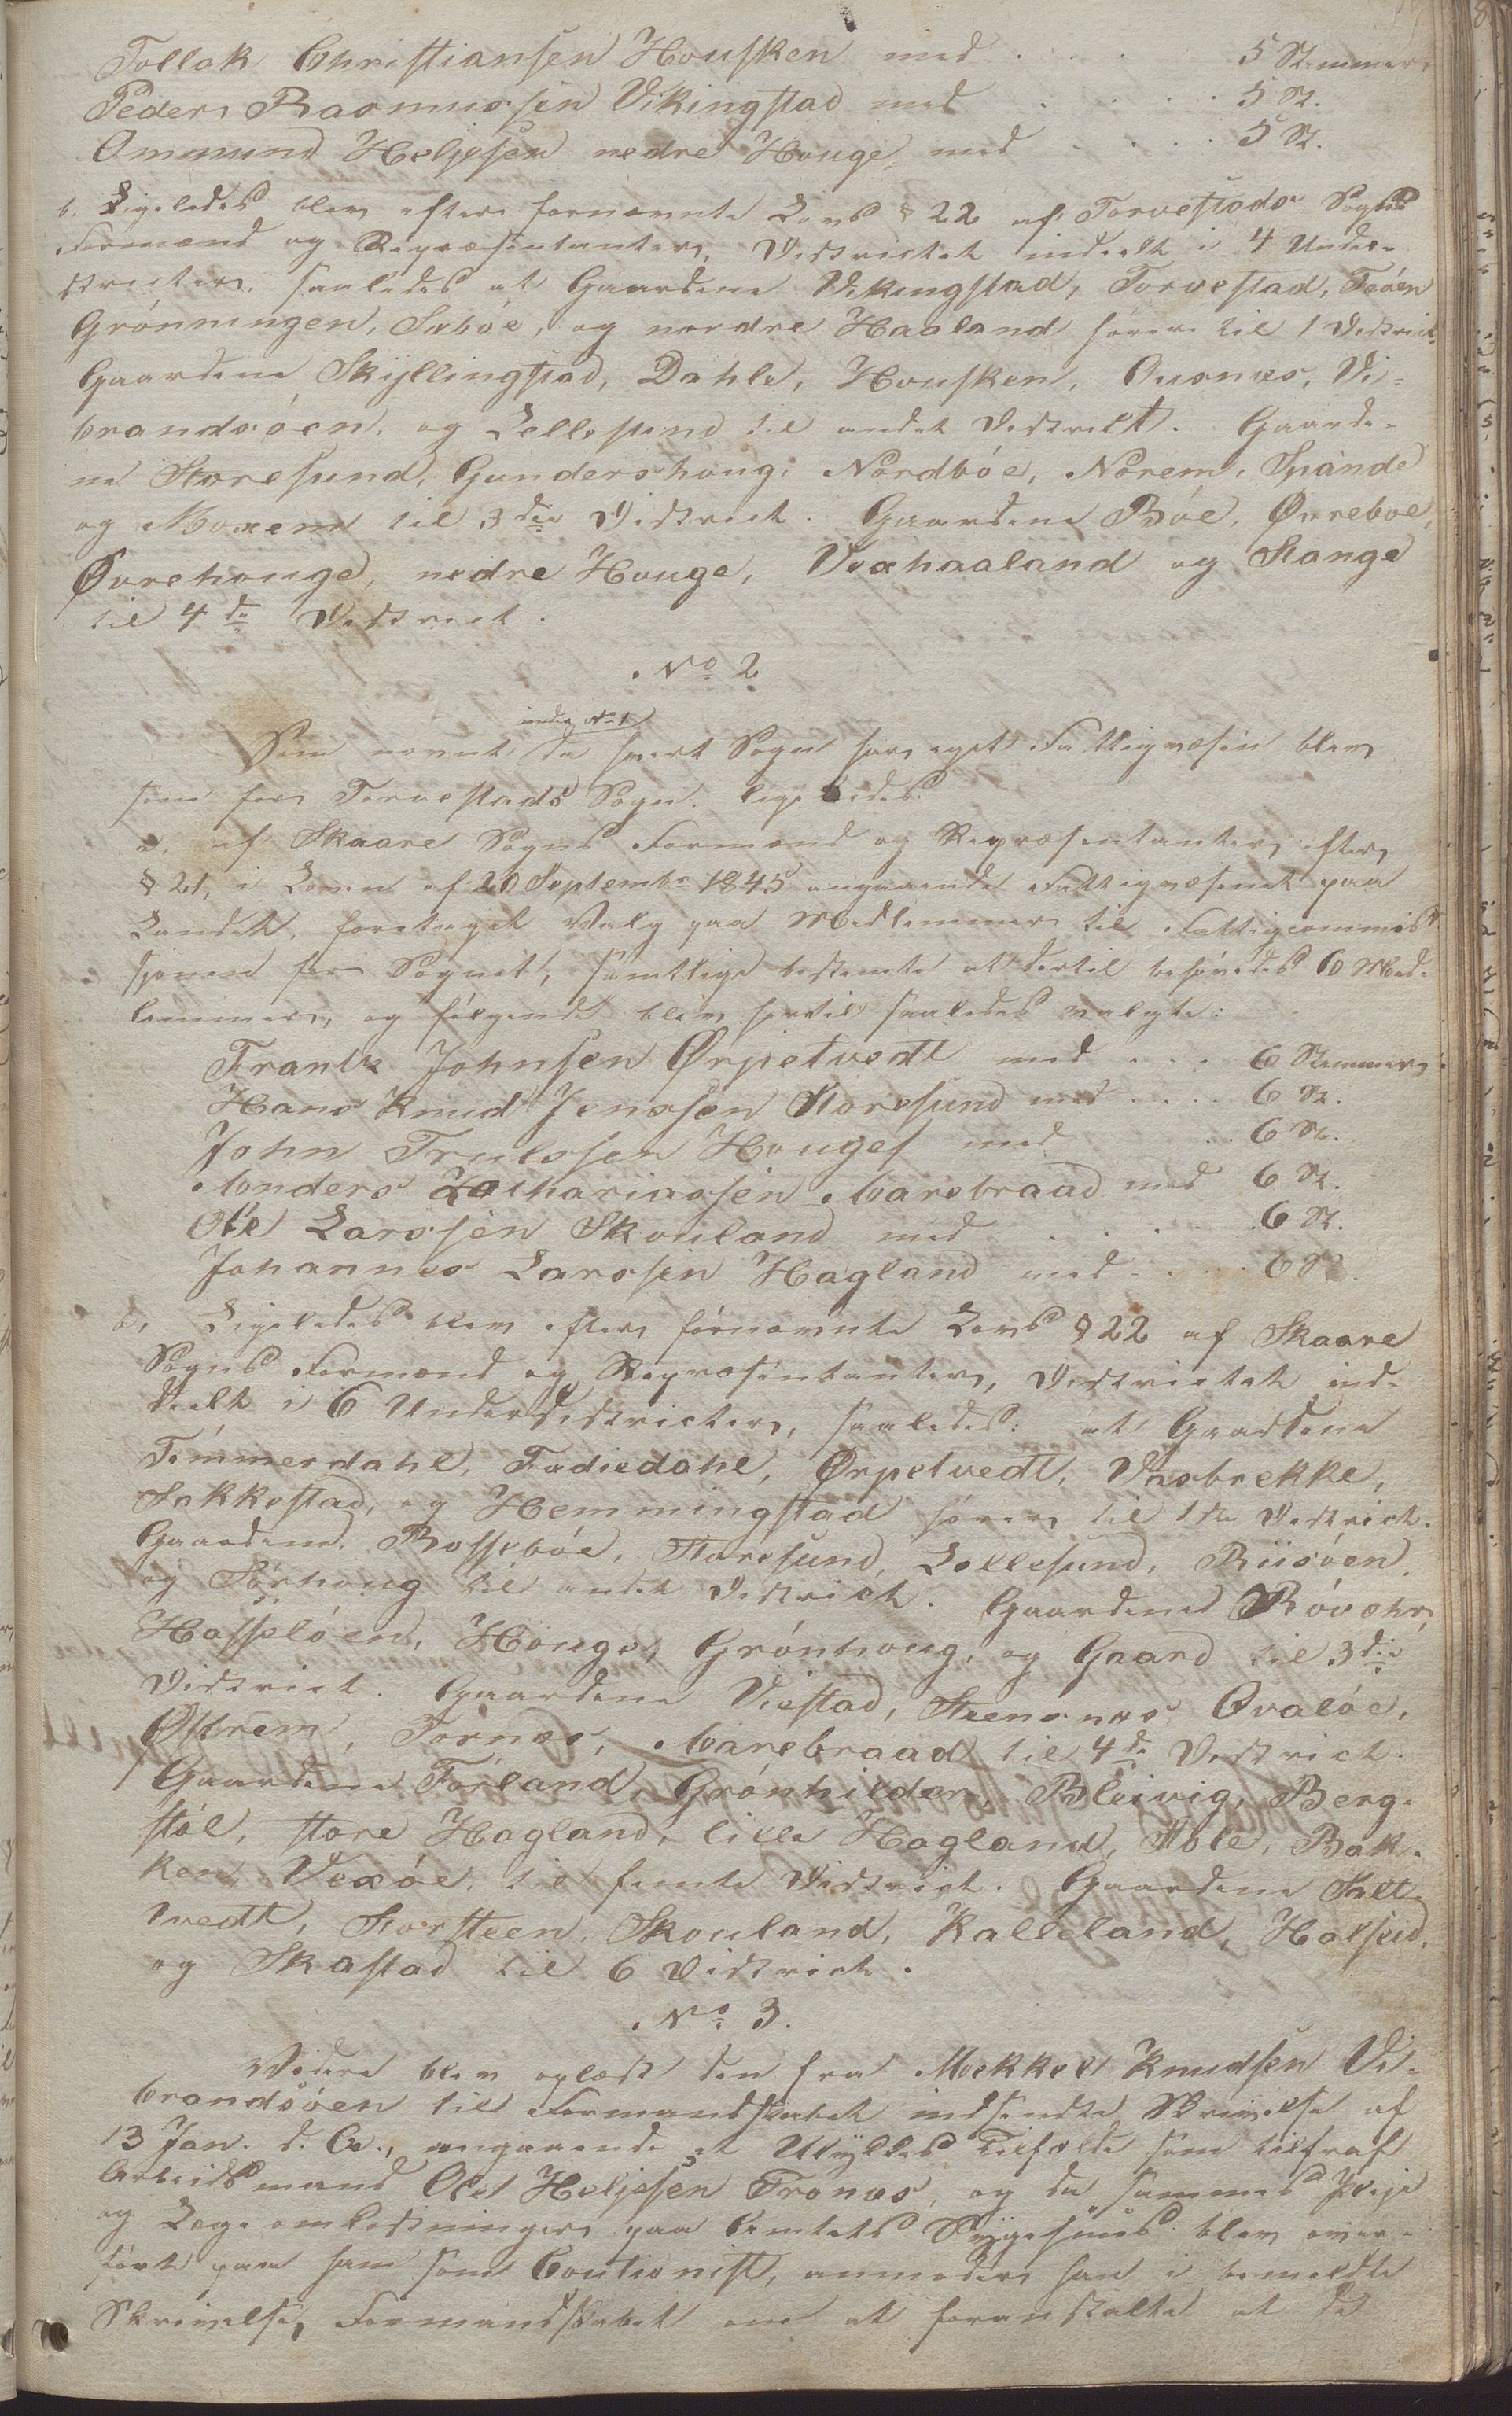 Tollak Christiansen Housken med . . . 5 Stemmer
Peder Rasmussen Vikingstad med . . . . 5 St.
Ommund Heljesen nedre Houge, med . . . . 5 St.
b. Ligeledes blev efter fornevnte Lovs § 22 af Torvestads Sogns
Formænd og Repræsentanter, Districtet indeelt i 4 Under-
districter, saaledes at Gaardene Vikingstad, Torvestad, Feóen
Grónningen, Sæbóe, og nordre Haaland hører til 1 District,
Gaardene Skyllingstad, Dahle, Housken, Ousnæs, Vi-
brandsóen, og Lillesund til andet District. Gaarde-
ne Storesund, Gundershoug, Nordbóe, Norem, Spande
og Moxem til 3die District. Gaardene Bóe, Øvreboe,
Øvrehouge, nedre Houge, Vexhaaland og Stange
til 4de District.
No 2
under No 1
Som nevnt da hvert Sogn har eget Fattigvæsen blev
som for Torvestads Sogn. ligeledes
a. af Skaare Sogns Formænd og Repræsentanter efter
§ 21, i Loven af 20 Septembr 1845 angaaende Fattigvæsenet paa
Landet, foretaget Valg paa Medlemmer til Fattigcommis-
sjonen for Sognet, samtlige bestemte at dertil behøvedes 6 Med-
lemmer, og følgende blev hertil saaledes valgte:
Frantz Johnsen Ørpetvedt med . . . 6 Stemmer
Hans Knud Jonssen Storesund med . . . . 6 St.
John Trulssen Houges med . . 6 St.
Anders Zachariassen Aarebraad med 6 St.
Ole Larssen Skouland med . . . . 6 St.
Johannes Larssen Hagland med . . . . 6 St.
b, Ligeledes blev efter fórnævnte Lovs § 22 af Skaare
Sogns Formænd og Repræsentanter, Districtet ind-
deelt i 6 Underdistricter, saaledes: at Gaardene
Tømmerdahl, Fadiedahl, Ørpetvedt, Vasbrekke,
Sakkestad, og Hemmingstad hører til 1ste District.
Gaardene, Rossebóe, Storesund, Lillesund, Riisóen,
og Sórhoug til andet District. Gaardene Róvæhr,
Hasselóen, Houge, Grónhoug, og Gaard til 3die
District. Gaardene Viestad, Steensnæs Qvalóe,
Østrem, Tornæs, Aarebraad til 4de District.
Gaardene Fórland, Grónhilder, Bleivig, Berg-
stól, store Hagland, lille Hagland, Stóle, Bak-
ken, Vexóe, til femte District. Gaardene Kalt-
tvedt, Storsteen, Skouland, Kalleland, Halseid,
og Skastad til 6 District.
No 3.
Videre blev oplæst den fra Mekkel Knudsen Vi-
brandsóen til Formandskabet indsendte Skrivelse af
13 Jan. d. A., angaaende et Ulykkes Tilfælde som tilfraf
Arbeidsmand Ole Heljesen Tronæs, og da sammes Pleje
og Lægeomkostninger paa Amtets Sygehuus blev over-
fórt paa ham som Coutionist, anmoder han i bemeldte
Skrivelse, Formandskabet om at foranstalte at de